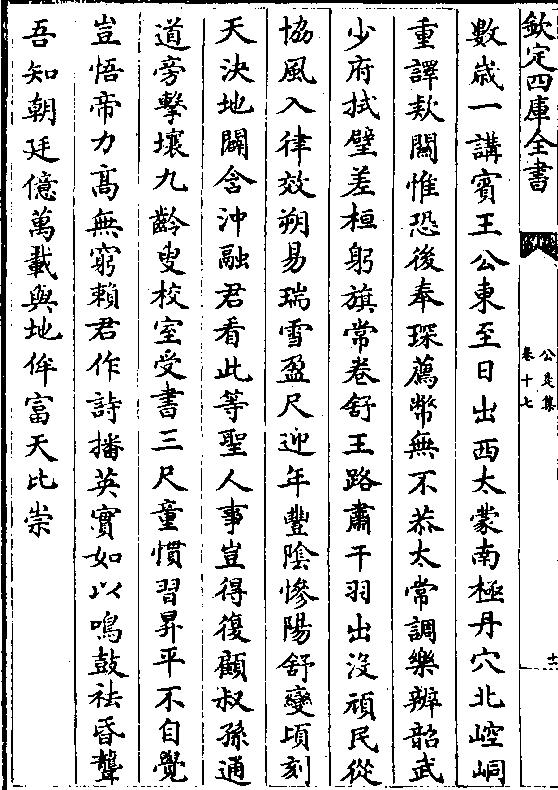 欽定四庫全書
公是集
卷十七
十二
數歳一講賔王公東至日出西太蒙南極丹穴北崆峒
重譯欵闗惟恐後奉琛薦幣無不恭太常調樂辨韶武
少府拭璧差桓躬旗常卷舒王路肅干羽出沒頑民從
協風入律效朔易瑞雪盈尺迎年豐陰慘陽舒變頃刻
天決地闢含沖融君看此等聖人事豈得復顧叔孫通
道旁擊壤九齡叟校室受書三尺童慣習昇平不自覺
豈悟帝力髙無窮頼君作詩播英實如以鳴鼓祛昏聾
吾知朝廷億萬載與地侔富天比崇